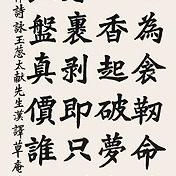 為衾靭命
香起破夢
裹剥即只
盤真價誰
詩詠玉葱太献先生漢譯草庵